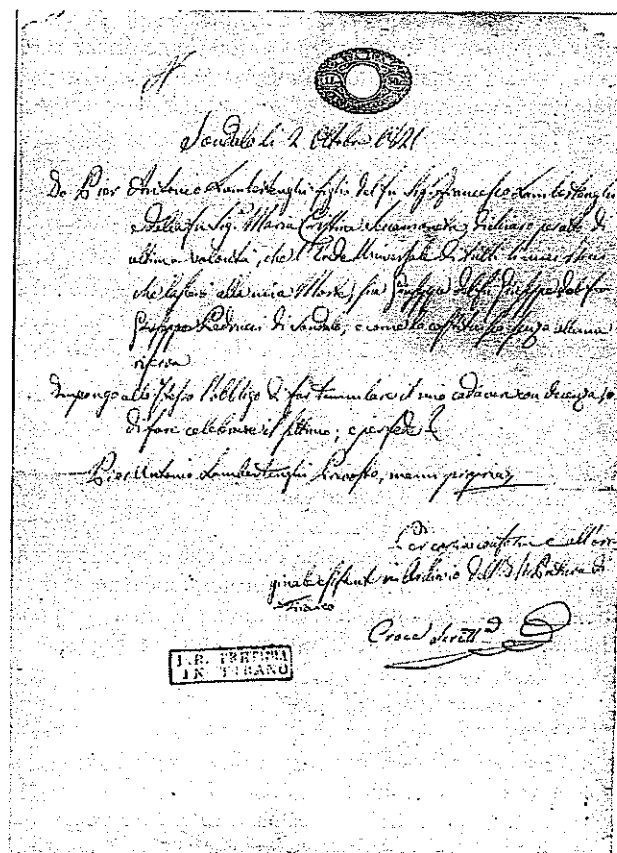 Sondalo li 2 Ottobre 1821
Io Pier Antonio Lambertenghi figlio del fu Sig. Francesco Lambertenghi
e della fu Sig. Maria Cristina dichiaro per atto di
ultima volontà, che l'Erede Universale di tutti li miei
che lascio alla mia Morte, sia Giuseppe del fu Giuseppe del fu
Giuseppe Pedrini di Sondalo, e come lo costituisco senza alcuna
riserva
Impongo allo stesso l'obbligo di far tumulare il mio cadavere con decenza,
di fare celebrare il settimo; e per fede
Pier Antonio Lambertenghi, manu propria
Per copia conforme all'ori
ginale esistente in Archivio dell' Pretura di
Tirano
Croce
I.R. PRETURA
IN TIRANO